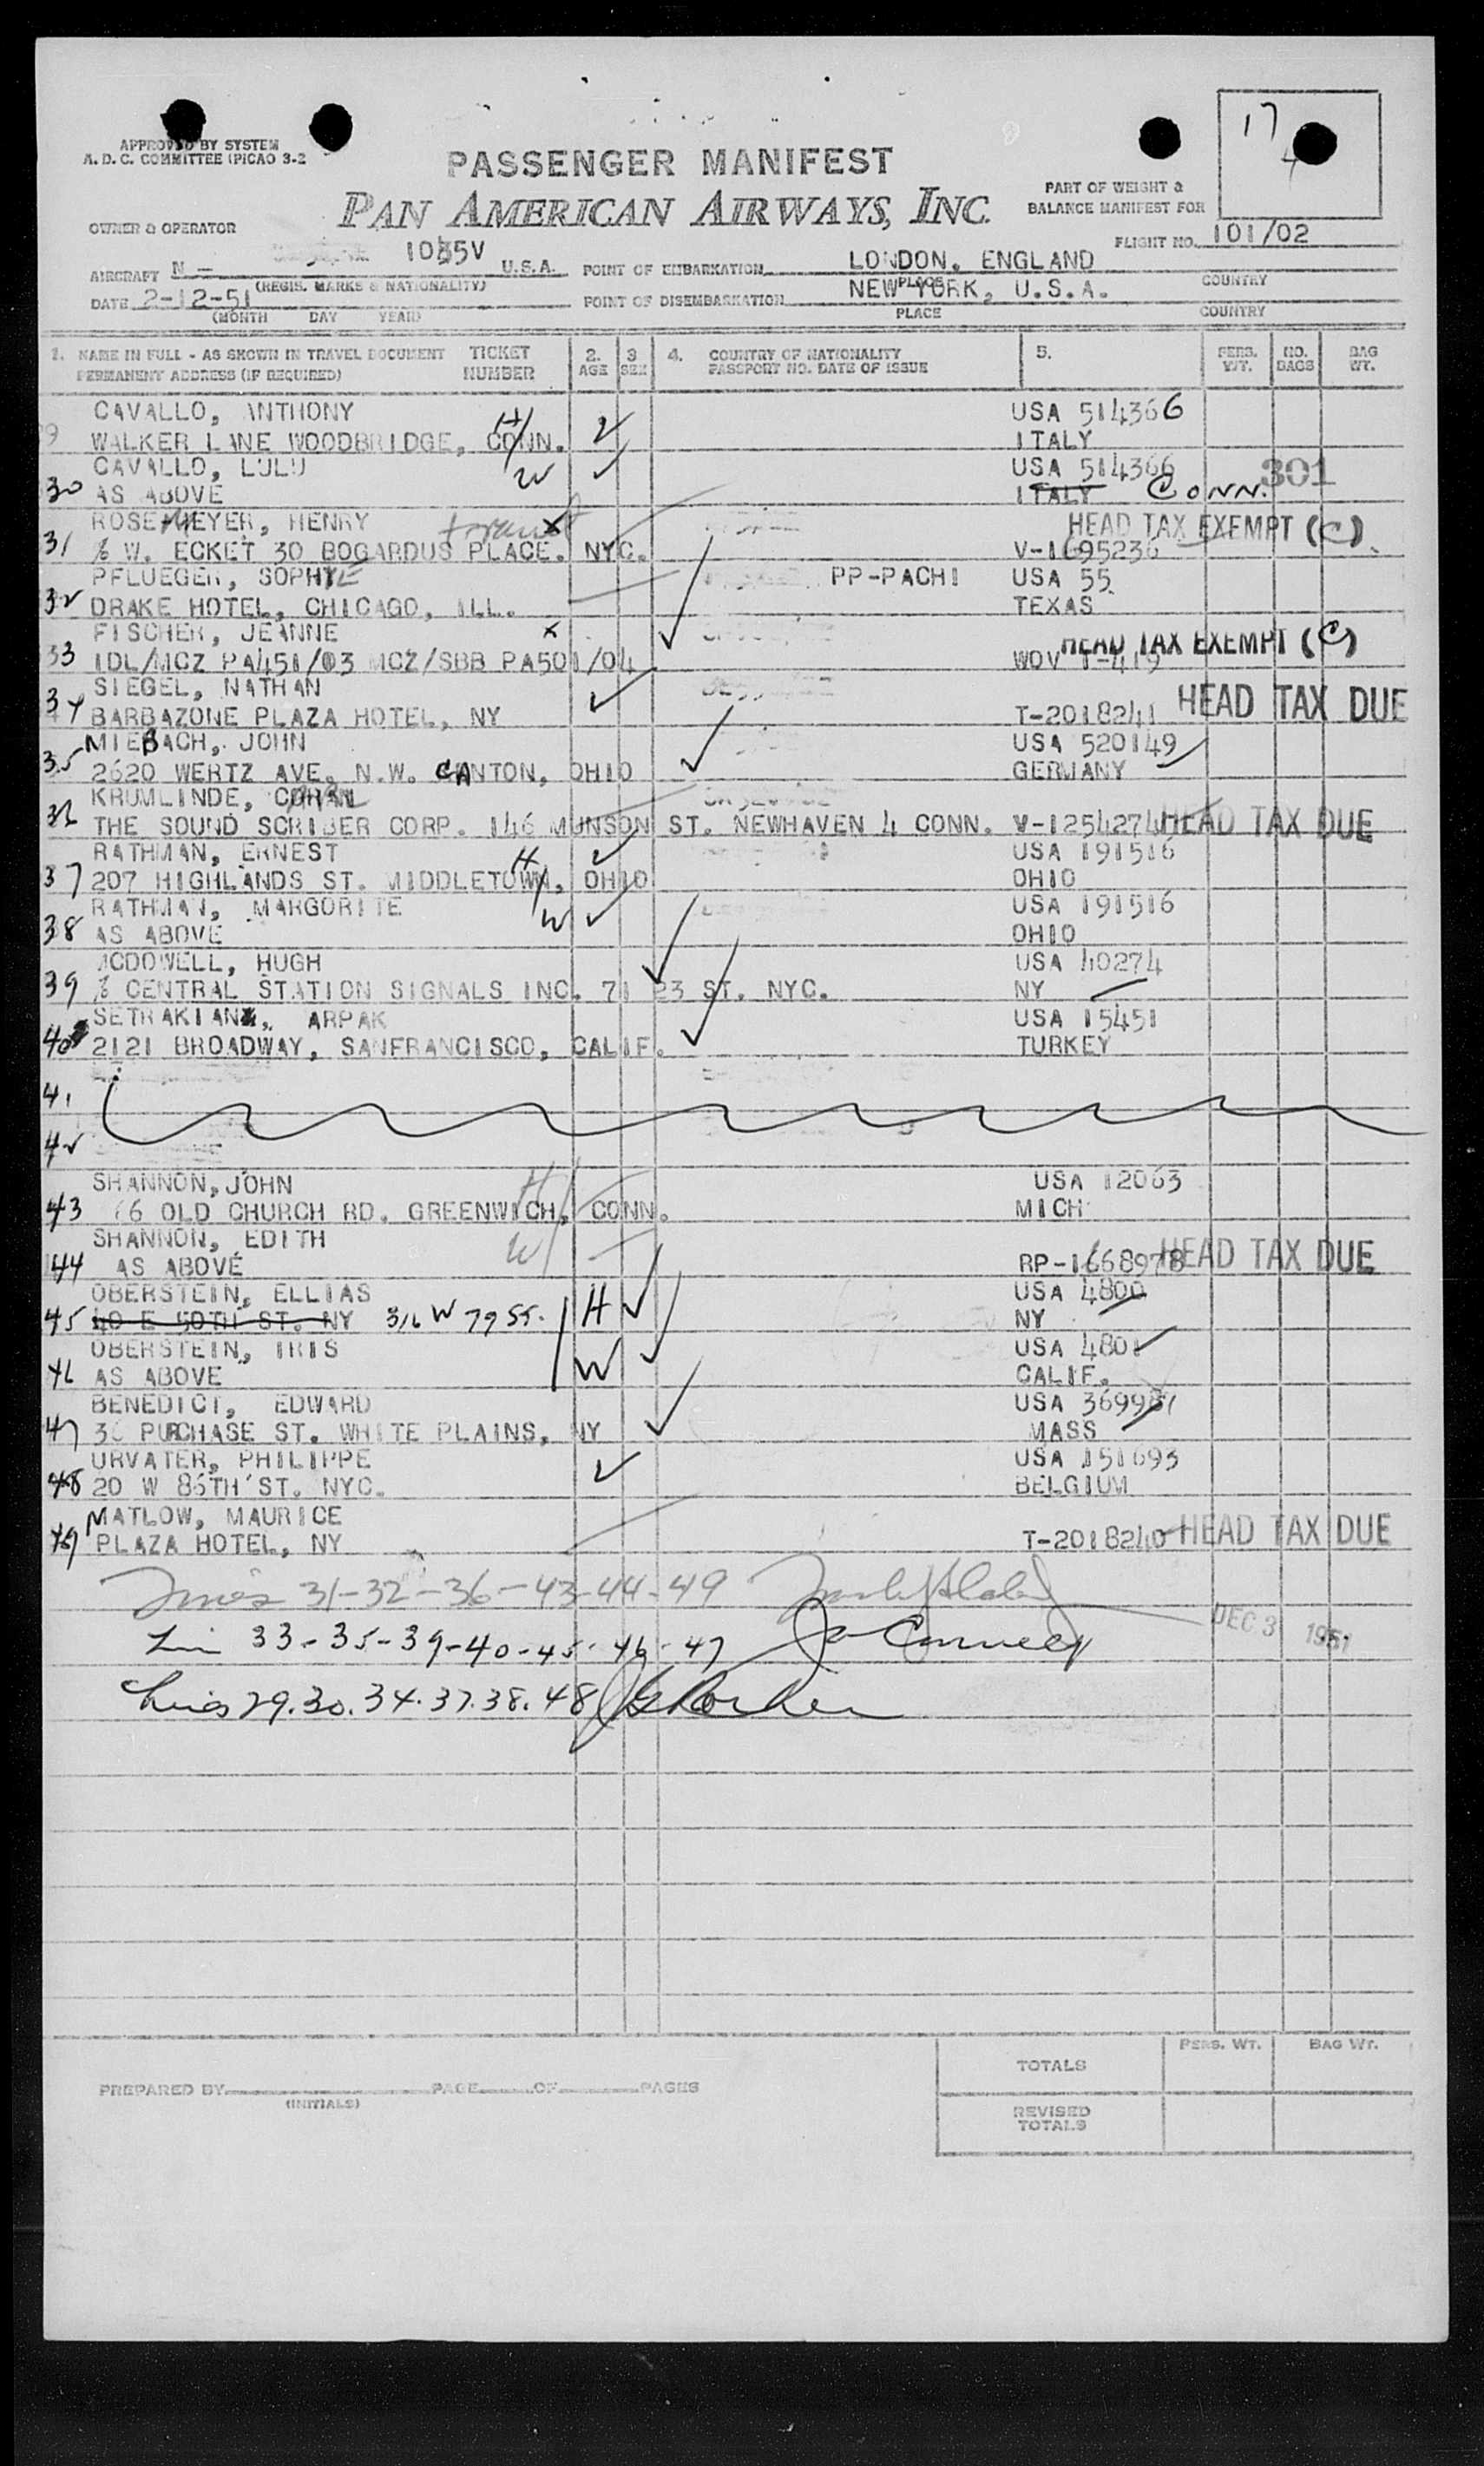 17
4
APPROVED BY SYSTEM
A. D. C. COMMITTEE (PICAO 3-2
PASSENGER MANIFEST
PAN AMERICAN AIRWAYS, INC.
PART OF WEIGHT &
BALANCE MANIFEST FOR
OWNER & OPERATOR
FLIGHT NO. 101/02
AIRCRAFT N - 1035V U.S.A. POINT OF EMBARKATION LONDON, ENGLAND
(REGIS. MARKS & NATIONALITY) PLACE COUNTRY
DATE 2-12-51 POINT OF DISEMBARKATION NEW YORK, U.S.A.
(MONTH DAY YEAR) PLACE COUNTRY
1. NAME IN FULL - AS SHOWN IN TRAVEL DOCUMENT TICKET 2. 3 4. COUNTRY OF NATIONALITY 5. PERS. NO. BAG
PERMANENT ADDRESS (IF REQUIRED) NUMBER AGE SEX PASSPORT NO. DATE OF ISSUE WT. BAGS WT.
CAVALLO, ANTHONY H USA 514366
29 WALKER LANE WOODBRIDGE, CONN. ITALY
CAVALLO, LULU W USA 514366 301
30 AS ABOVE ITALY CONN.
ROSEMEYER, HENRY transit X HEAD TAX EXEMPT (C)
31 % W. ECKET 30 BOGARDUS PLACE. NYC. V-1695236
PFLUEGER, SOPHIE PP-PACHI USA 55
32 DRAKE HOTEL, CHICAGO, ILL. TEXAS
FISCHER, JEANNE X HEAD TAX EXEMPT (C)
33 IDL/MCZ PA451/03 MCZ/SBB PA501/04 WOV T-419
SIEGEL, NATHAN HEAD TAX DUE
34 BARBAZONE PLAZA HOTEL, NY T-2018241
MIEBACH, JOHN USA 520149
35 2620 WERTZ AVE, N.W. CANTON, OHIO GERMANY
KRUMLINDE,
36 THE SOUND SCRIBER CORP. 146 MUNSON ST. NEWHAVEN 4 CONN. V-1254274 HEAD TAX DUE
RATHMAN, ERNEST H USA 191516
37 207 HIGHLANDS ST. MIDDLETOWN, OHIO OHIO
RATHMAN, MARGORITE W USA 191516
38 AS ABOVE OHIO
MCDOWELL, HUGH USA 40274
39 % CENTRAL STATION SIGNALS INC. 71 23 ST. NYC. NY
SETRAKIAN, ARPAK USA 15451
40 2121 BROADWAY, SANFRANCISCO, CALIF. TURKEY
41
42
SHANNON, JOHN H USA 12063
43 66 OLD CHURCH RD. GREENWICH, CONN. MICH
SHANNON, EDITH W HEAD TAX DUE
44 AS ABOVE RP-1668978
OBERSTEIN, ELLIAS H USA 4800
45 40 E 50TH ST. NY 316 W 79 ST. NY
OBERSTEIN, IRIS W USA 4801
46 AS ABOVE CALIF.
BENEDICT, EDWARD USA 369951
47 36 PURCHASE ST. WHITE PLAINS, NY MASS
URVATER, PHILIPPE USA 151693
48 20 W 86TH ST. NYC. BELGIUM
MATLOW, MAURICE
49 PLAZA HOTEL, NY T-2018240 HEAD TAX DUE
Lines 31-32-36-43-44-49
DEC 3 1951
Lin 33-35-39-40-45-46-47
Lines 29.30.34.37.38.48
PREPARED BY PAGE OF PAGES
(INITIALS)
PERS. WT. BAG WT.
TOTALS
REVISED
TOTALS